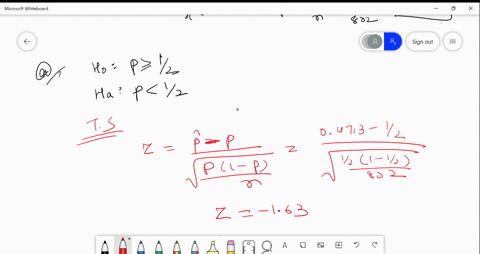 Microsoft Whiteboard
n 802
Sign out
Q/ H₀: P ≥ 1/2
Ha: P < 1/2
T.S
Z = p̂ - P / √(P(1-P)/n) = 0.4713 - 1/2 / √(½(1-½)/802)
Z = -1.63